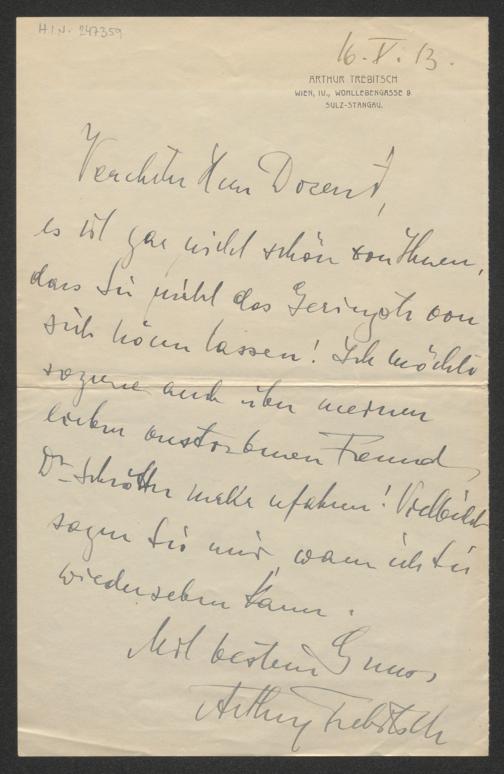 H.I.N. 247359
16. V. 13.
ARTHUR TREBITSCH
WIEN, IV., WOHLLEBENGASSE 9.
SULZ-STANGAU.
Verehrter Herr Dozent,
es ist gar nicht schön von Ihnen,
dass Sie nicht das Geringste von
sich hören lassen! Ich möchte
so gerne auch über meinen
lieben verstorbenen Freund
Dr. Schrötter mehr erfahren! Vielleicht
sagen Sie mir, wann ich Sie
wiedersehen kann.
Mit bestem Gruss
Arthur Trebitsch